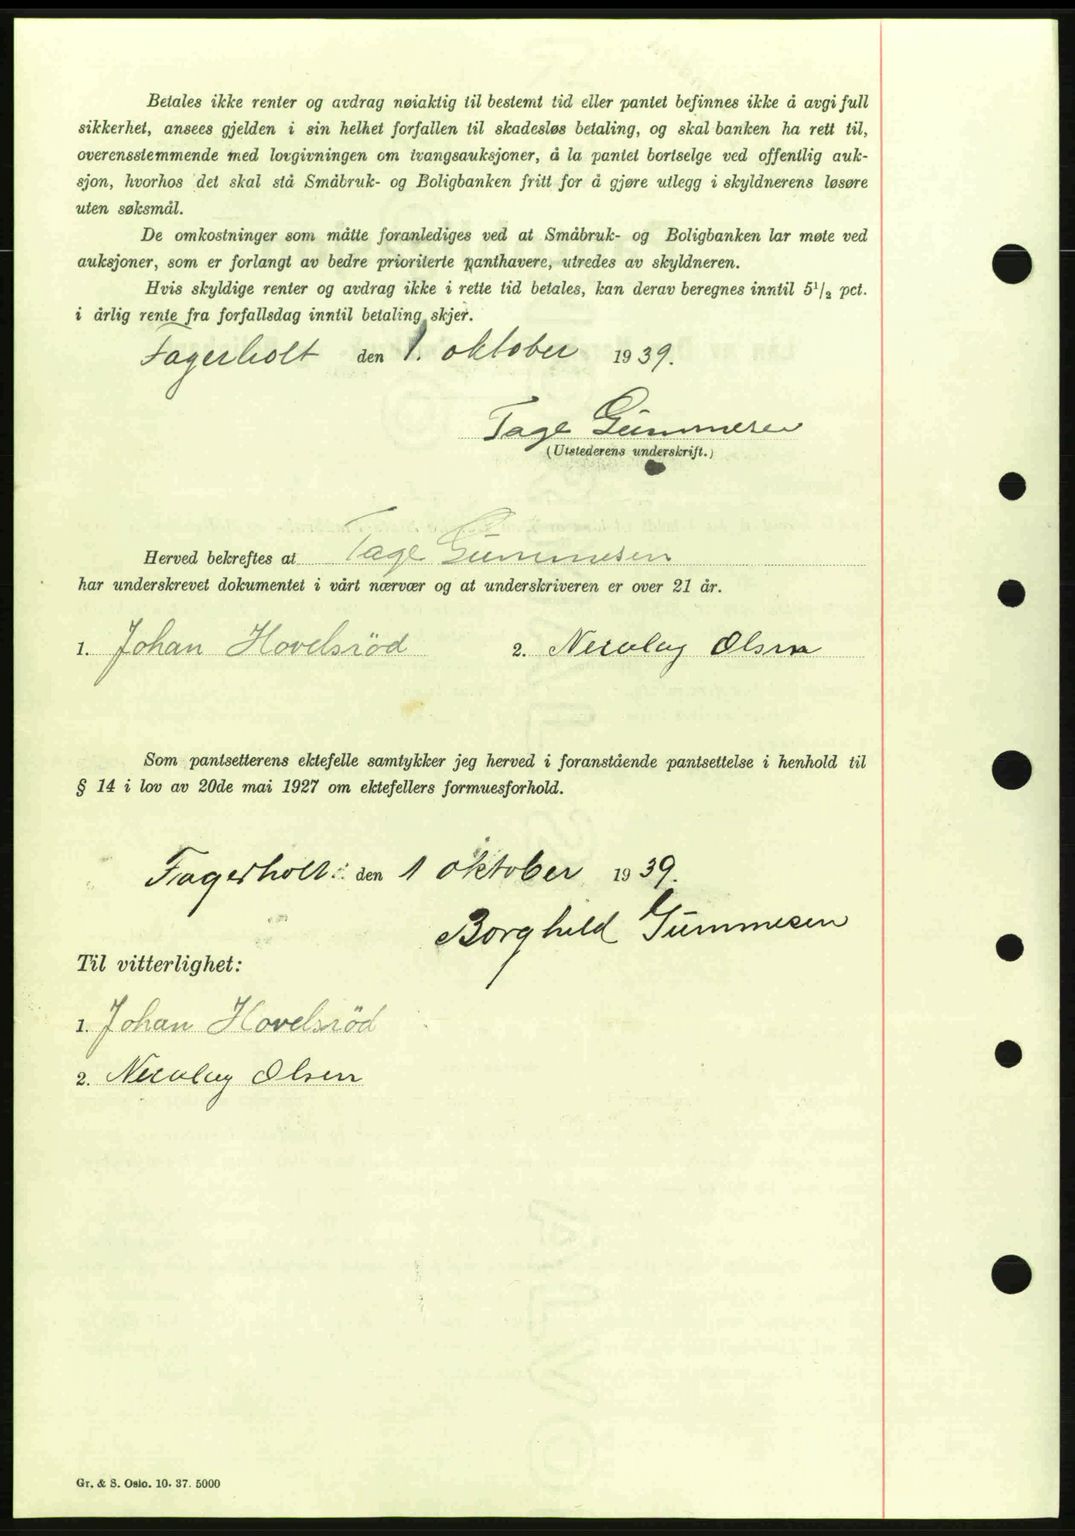 Betales ikke renter og avdrag nøiaktig til bestemt tid eller pantet befinnes ikke å avgi full
sikkerhet, ansees gjelden i sin helhet forfallen til skadesløs betaling, og skal banken ha rett til,
overensstemmende med lovgivningen om tvangsauksjoner, å la pantet bortselge ved offentlig auk-
sjon, hvorhos det skal stå Småbruk- og Boligbanken fritt for å gjøre utlegg i skyldnerens løsøre
uten søksmål.
De omkostninger som måtte foranlediges ved at Småbruk- og Boligbanken lar møte ved
auksjoner, som er forlangt av bedre prioriterte panthavere, utredes av skyldneren.
Hvis skyldige renter og avdrag ikke i rette tid betales, kan derav beregnes inntil 5½ pct.
i årlig rente fra forfallsdag inntil betaling skjer.
Fagerholt den 1. oktober 1939.
Tage Gümmesen
(Utstederens underskrift.)
Herved bekreftes at Tage Gümmesen
har underskrevet dokumentet i vårt nærvær og at underskriveren er over 21 år.
1. Johan Hovelsröd 2. Nicolay Olsen
Som pantsetterens ektefelle samtykker jeg herved i foranstående pantsettelse i henhold til
§ 14 i lov av 20de mai 1927 om ektefellers formuesforhold.
Fagerholt den 1 oktober 1939.
Borghild Gümmesen
Til vitterlighet:
1. Johan Hovelsröd
2. Nicolay Olsen
Gr. & S. Oslo. 10. 37. 5000